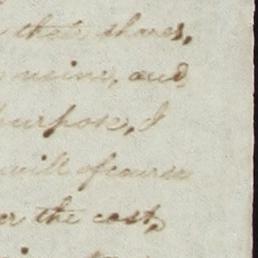 their shares,
mine, and
purpose, I
will of course
or the cost,